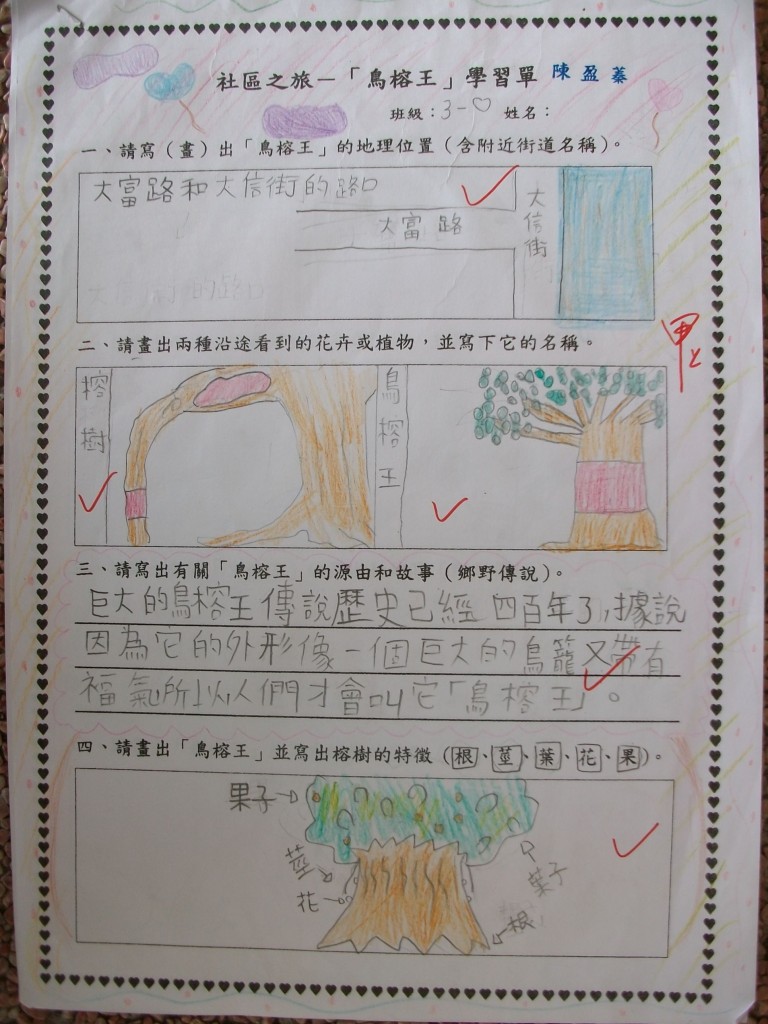 社區之旅－「鳥榕王」學習單 陳盈蓁
班級：3-♡ 姓名：
一、請寫（畫）出「鳥榕王」的地理位置（含附近街道名稱）。
大富路和大信街的路口
大富路
大信街
二、請畫出兩種沿途看到的花卉或植物，並寫下它的名稱。
甲上
榕樹
鳥榕王
三、請寫出有關「鳥榕王」的源由和故事（鄉野傳說）。
巨大的鳥榕王傳說歷史已經四百年了，據說
因為它的外形像一個巨大的鳥籠又帶有
福氣所以人們才會叫它「鳥榕王」。
四、請畫出「鳥榕王」並寫出榕樹的特徵（根、莖、葉、花、果）。
果子
莖
葉子
花
根